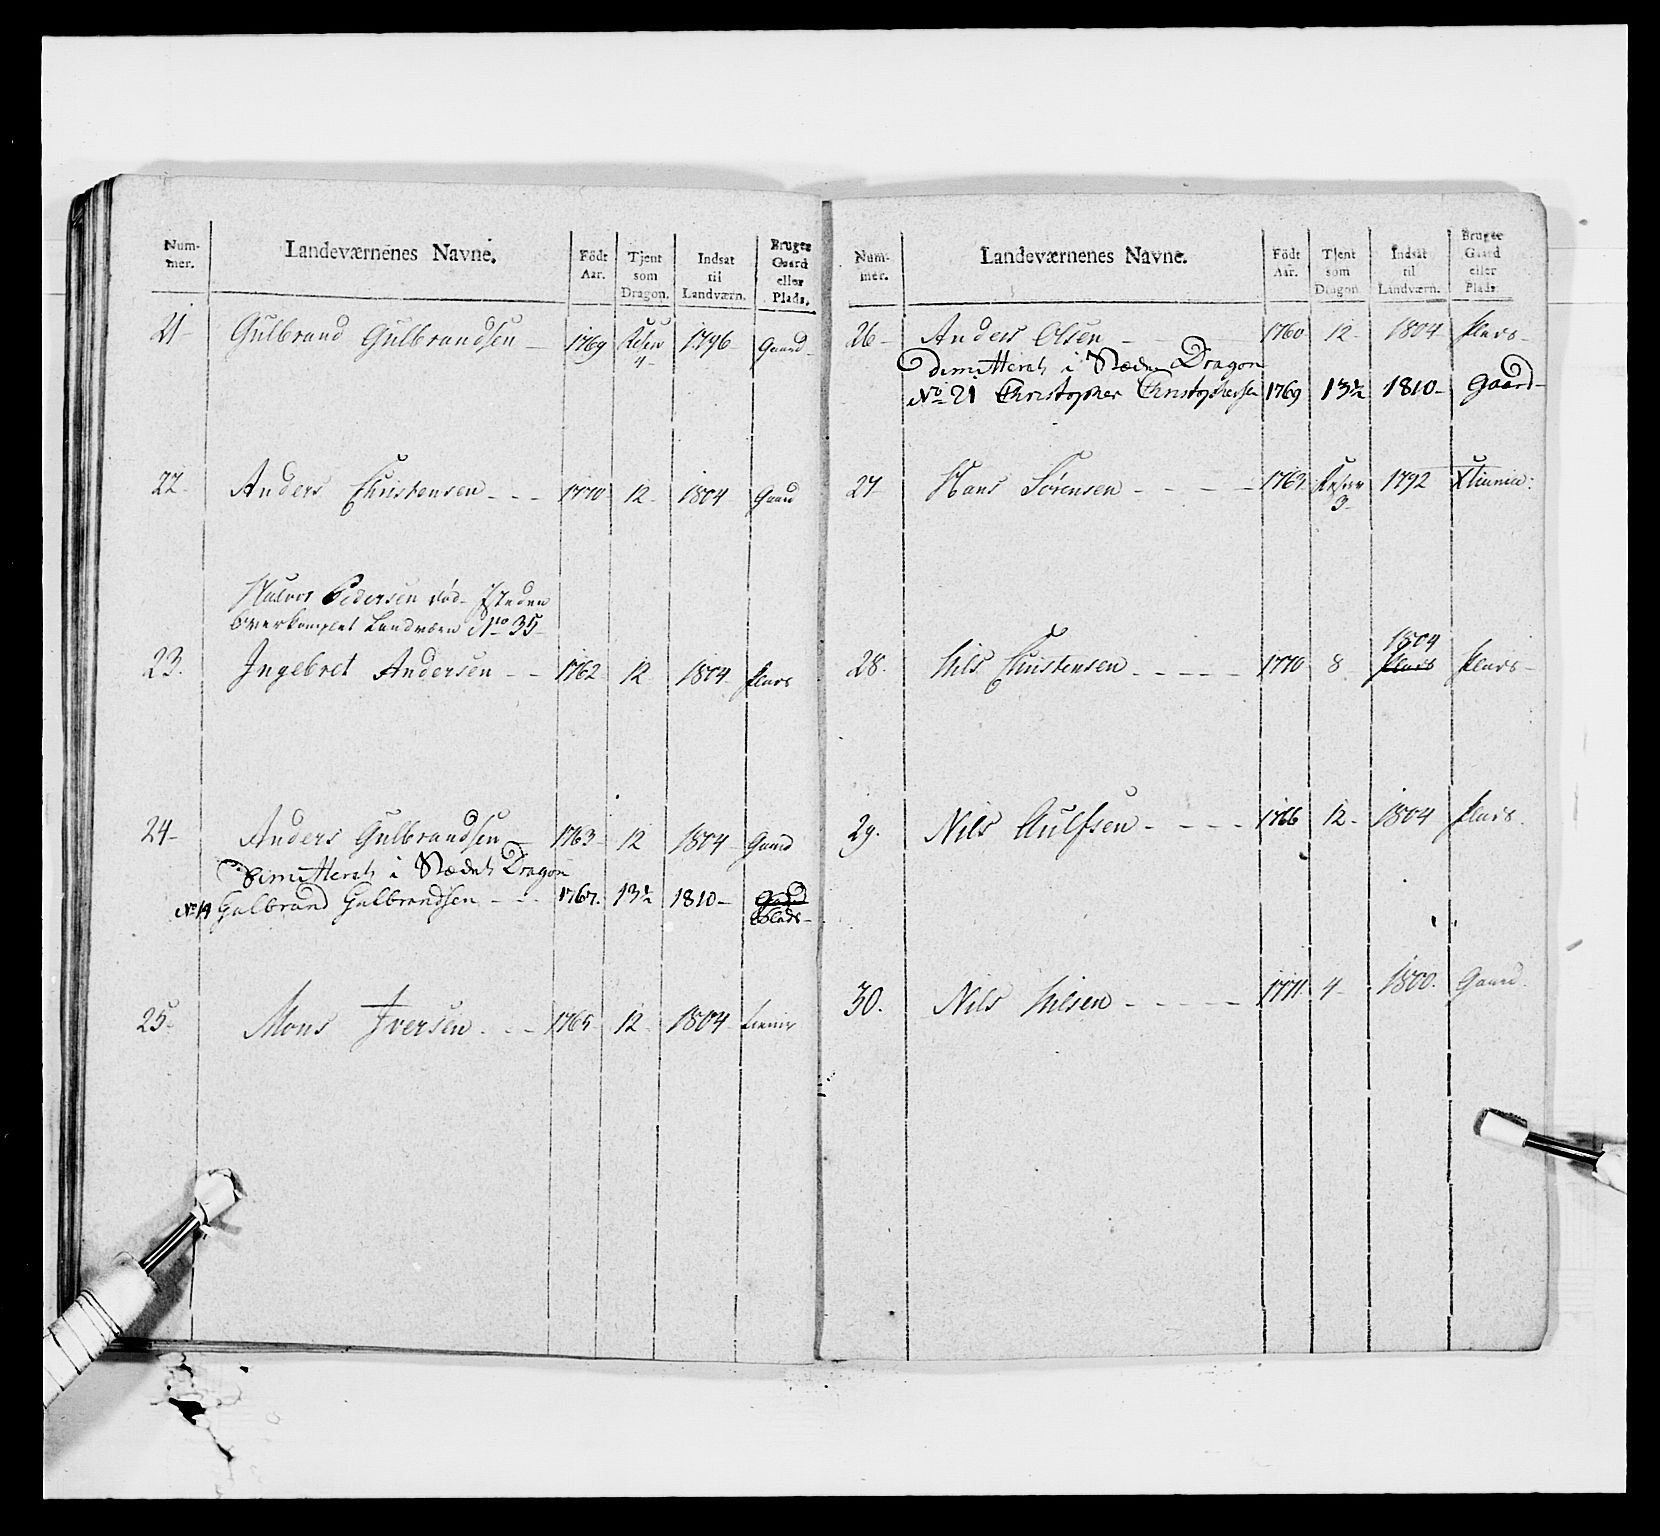 Num-mer. Landeværnenes Navne. Födt Aar. Tjent som Dragon. Indsat til Landværn. Bruger Gaard eller Plads.
21 Gulbrand Gulbrandsen 1769 Reserv 4 1796 Gaard
22 Anders Christensen 1770 12 1804 Gaard
Halvor Pedersen død Isteden
Overkomplet Landværn No 35
23. Ingebret Andersen 1762 12 1804 Plads
24 Anders Gulbrandsen 1763 12 1804 Gaard
Dimitteret i Stædet Dragon
No 19 Gulbrand Gulbrandsen 1767. 13½ 1810 Gaard
Plads
25 Mons Iversen 1765 12 1804
Num-mer. Landeværnenes Navne. Födt Aar. Tjent som Dragon. Indsat til Landværn. Bruger Gaard eller Plads.
26 Anders Olsen 1760 12 1804 Plads
Dimitteret i Stædet Dragon
No 21 Christopher Christophersen 1769 13½ 1810 Gaard
27 Hans Sörensen 1763 Reserv 3 1792
1804
28. Nils Christensen 1770 8 Plads Plads
29. Nils Aulfsen 1766 12 1804 Plads
30. Nils Nilsen 1771 4 1800. Gaard